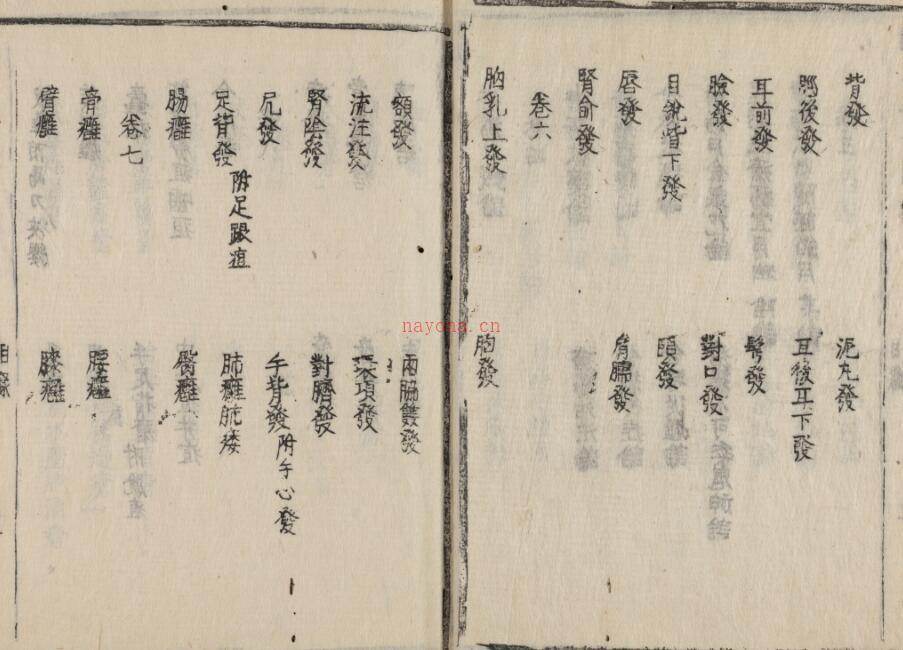 背發 泥丸發
腦後發 耳後耳下發
耳前發 鬓發
臉發 對口發
目銳眥下發 頤發
唇發 肩臑發
腎俞發
卷六
胸乳上發 胸發
額發 兩脇雙發
流注發 環項發
腎陰發 對臍發
尻發 手背發 附手心發
足背發 附足跟疽 肺癰肺痿
腸癰 臀癰
卷七
骨癰 腰癰
臂癰 膝癰
nayona.cn